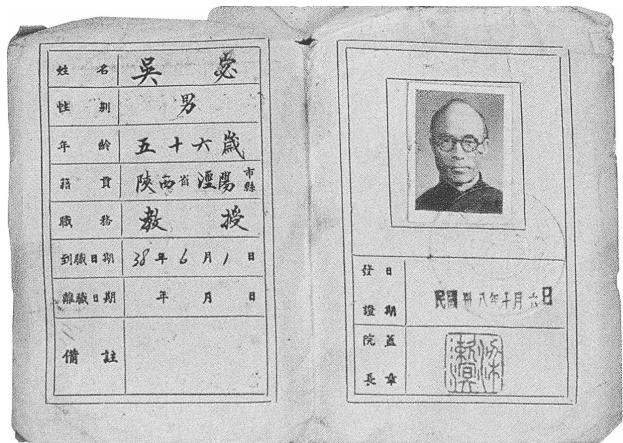 姓名 吳宓
性別 男
年齡 五十六歲
籍貫 陝西省涇陽市縣
職務 教授
到職日期 38年6月1日
離職日期 年 月 日
備註
發證日期 民國卅八年十月六日
院長蓋章